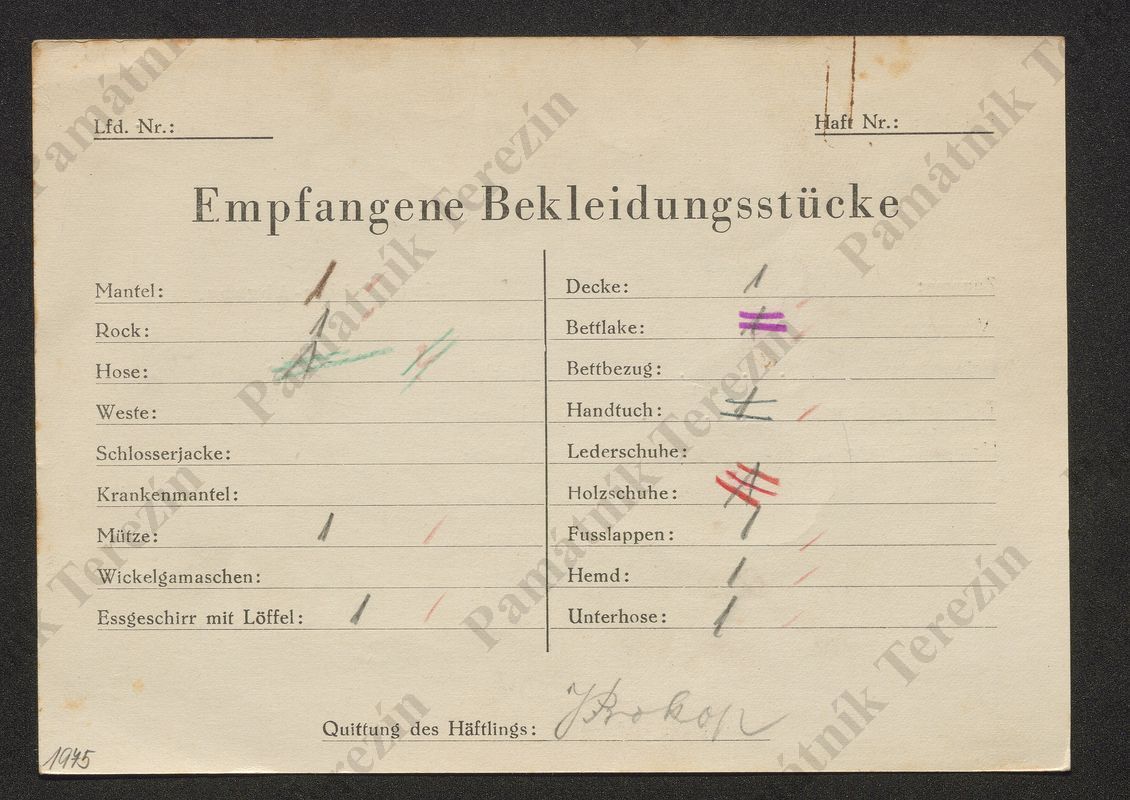 Lfd. Nr.:
Haft Nr.:
Empfangene Bekleidungsstücke
Mantel: 1
Rock: 1
Hose: 1
Weste:
Schlosserjacke:
Krankenmantel:
Mütze: 1
Wickelgamaschen:
Essgeschirr mit Löffel: 1
Decke: 1
Bettlake: 1
Bettbezug:
Handtuch: 1
Lederschuhe:
Holzschuhe: 1
Fusslappen: 1
Hemd: 1
Unterhose: 1
Quittung des Häftlings: Prokop
1945
Památník Terezín